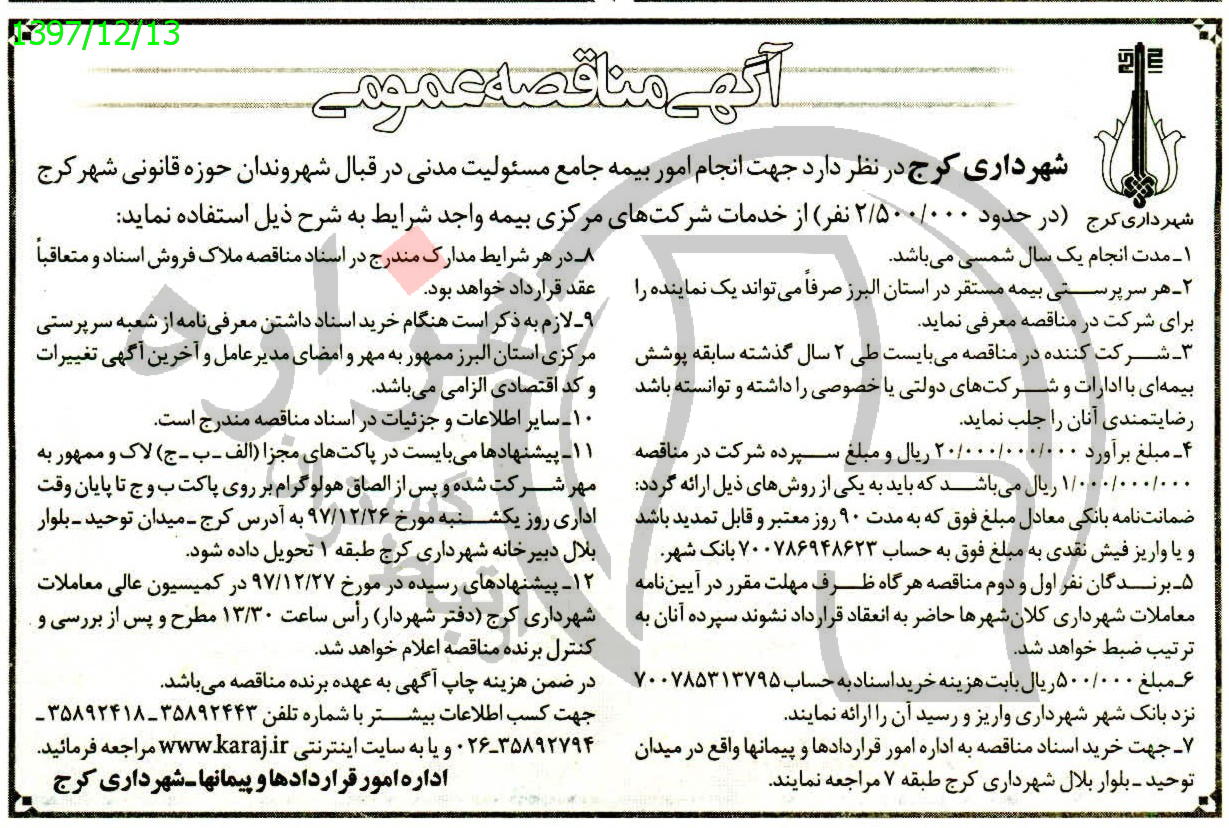 1397/12/13
آگهی مناقصه عمومی
شهرداری کرج
شهرداری کرج در نظر دارد جهت انجام امور بیمه جامع مسئولیت مدنی در قبال شهروندان حوزه قانونی شهر کرج
(در حدود ۲/۵۰۰/۰۰۰ نفر) از خدمات شرکت‌های مرکزی بیمه واجد شرایط به شرح ذیل استفاده نماید:
۱ـ مدت انجام یک سال شمسی می‌باشد.
۲ـ هر سرپرستی بیمه مستقر در استان البرز صرفاً می‌تواند یک نماینده را
برای شرکت در مناقصه معرفی نماید.
۳ـ شرکت کننده در مناقصه می‌بایست طی ۲ سال گذشته سابقه پوشش
بیمه‌ای با ادارات و شرکت‌های دولتی یا خصوصی را داشته و توانسته باشد
رضایتمندی آنان را جلب نماید.
۴ـ مبلغ برآورد ۲۰/۰۰۰/۰۰۰/۰۰۰ ریال و مبلغ سپرده شرکت در مناقصه
۱/۰۰۰/۰۰۰/۰۰۰ ریال می‌باشد که باید به یکی از روش‌های ذیل ارائه گردد:
ضمانت‌نامه بانکی معادل مبلغ فوق که به مدت ۹۰ روز معتبر و قابل تمدید باشد
و یا واریز فیش نقدی به مبلغ فوق به حساب ۷۰۰۷۸۶۹۴۸۶۲۳ بانک شهر.
۵ـ برندگان نفر اول و دوم مناقصه هرگاه ظرف مهلت مقرر در آیین‌نامه
معاملات شهرداری کلان‌شهرها حاضر به انعقاد قرارداد نشوند سپرده آنان به
ترتیب ضبط خواهد شد.
۶ـ مبلغ ۵۰۰/۰۰۰ ریال بابت هزینه خرید اسناد به حساب ۷۰۰۷۸۵۳۱۳۷۹۵
نزد بانک شهر شهرداری واریز و رسید آن را ارائه نمایند.
۷ـ جهت خرید اسناد مناقصه به اداره امور قراردادها و پیمانها واقع در میدان
توحید ـ بلوار بلال شهرداری کرج طبقه ۷ مراجعه نمایند.
۸ـ در هر شرایط مدارک مندرج در اسناد مناقصه ملاک فروش اسناد و متعاقباً
عقد قرارداد خواهد بود.
۹ـ لازم به ذکر است هنگام خرید اسناد داشتن معرفی‌نامه از شعبه سرپرستی
مرکزی استان البرز ممهور به مهر و امضای مدیرعامل و آخرین آگهی تغییرات
و کد اقتصادی الزامی می‌باشد.
۱۰ـ سایر اطلاعات و جزئیات در اسناد مناقصه مندرج است.
۱۱ـ پیشنهادها می‌بایست در پاکت‌های مجزا (الف ـ ب ـ ج) لاک و ممهور به
مهر شرکت شده و پس از الصاق هولوگرام بر روی پاکت ب و ج تا پایان وقت
اداری روز یکشنبه مورخ ۹۷/۱۲/۲۶ به آدرس کرج ـ میدان توحید ـ بلوار
بلال دبیرخانه شهرداری کرج طبقه ۱ تحویل داده شود.
۱۲ـ پیشنهادهای رسیده در مورخ ۹۷/۱۲/۲۷ در کمیسیون عالی معاملات
شهرداری کرج (دفتر شهردار) رأس ساعت ۱۳/۳۰ مطرح و پس از بررسی و
کنترل برنده مناقصه اعلام خواهد شد.
در ضمن هزینه چاپ آگهی به عهده برنده مناقصه می‌باشد.
جهت کسب اطلاعات بیشتر با شماره تلفن ۳۵۸۹۲۴۴۳ ـ ۳۵۸۹۲۴۱۸ ـ
۰۲۶-۳۵۸۹۲۷۹۴ و یا به سایت اینترنتی www.karaj.ir مراجعه فرمائید.
اداره امور قراردادها و پیمانها ـ شهرداری کرج